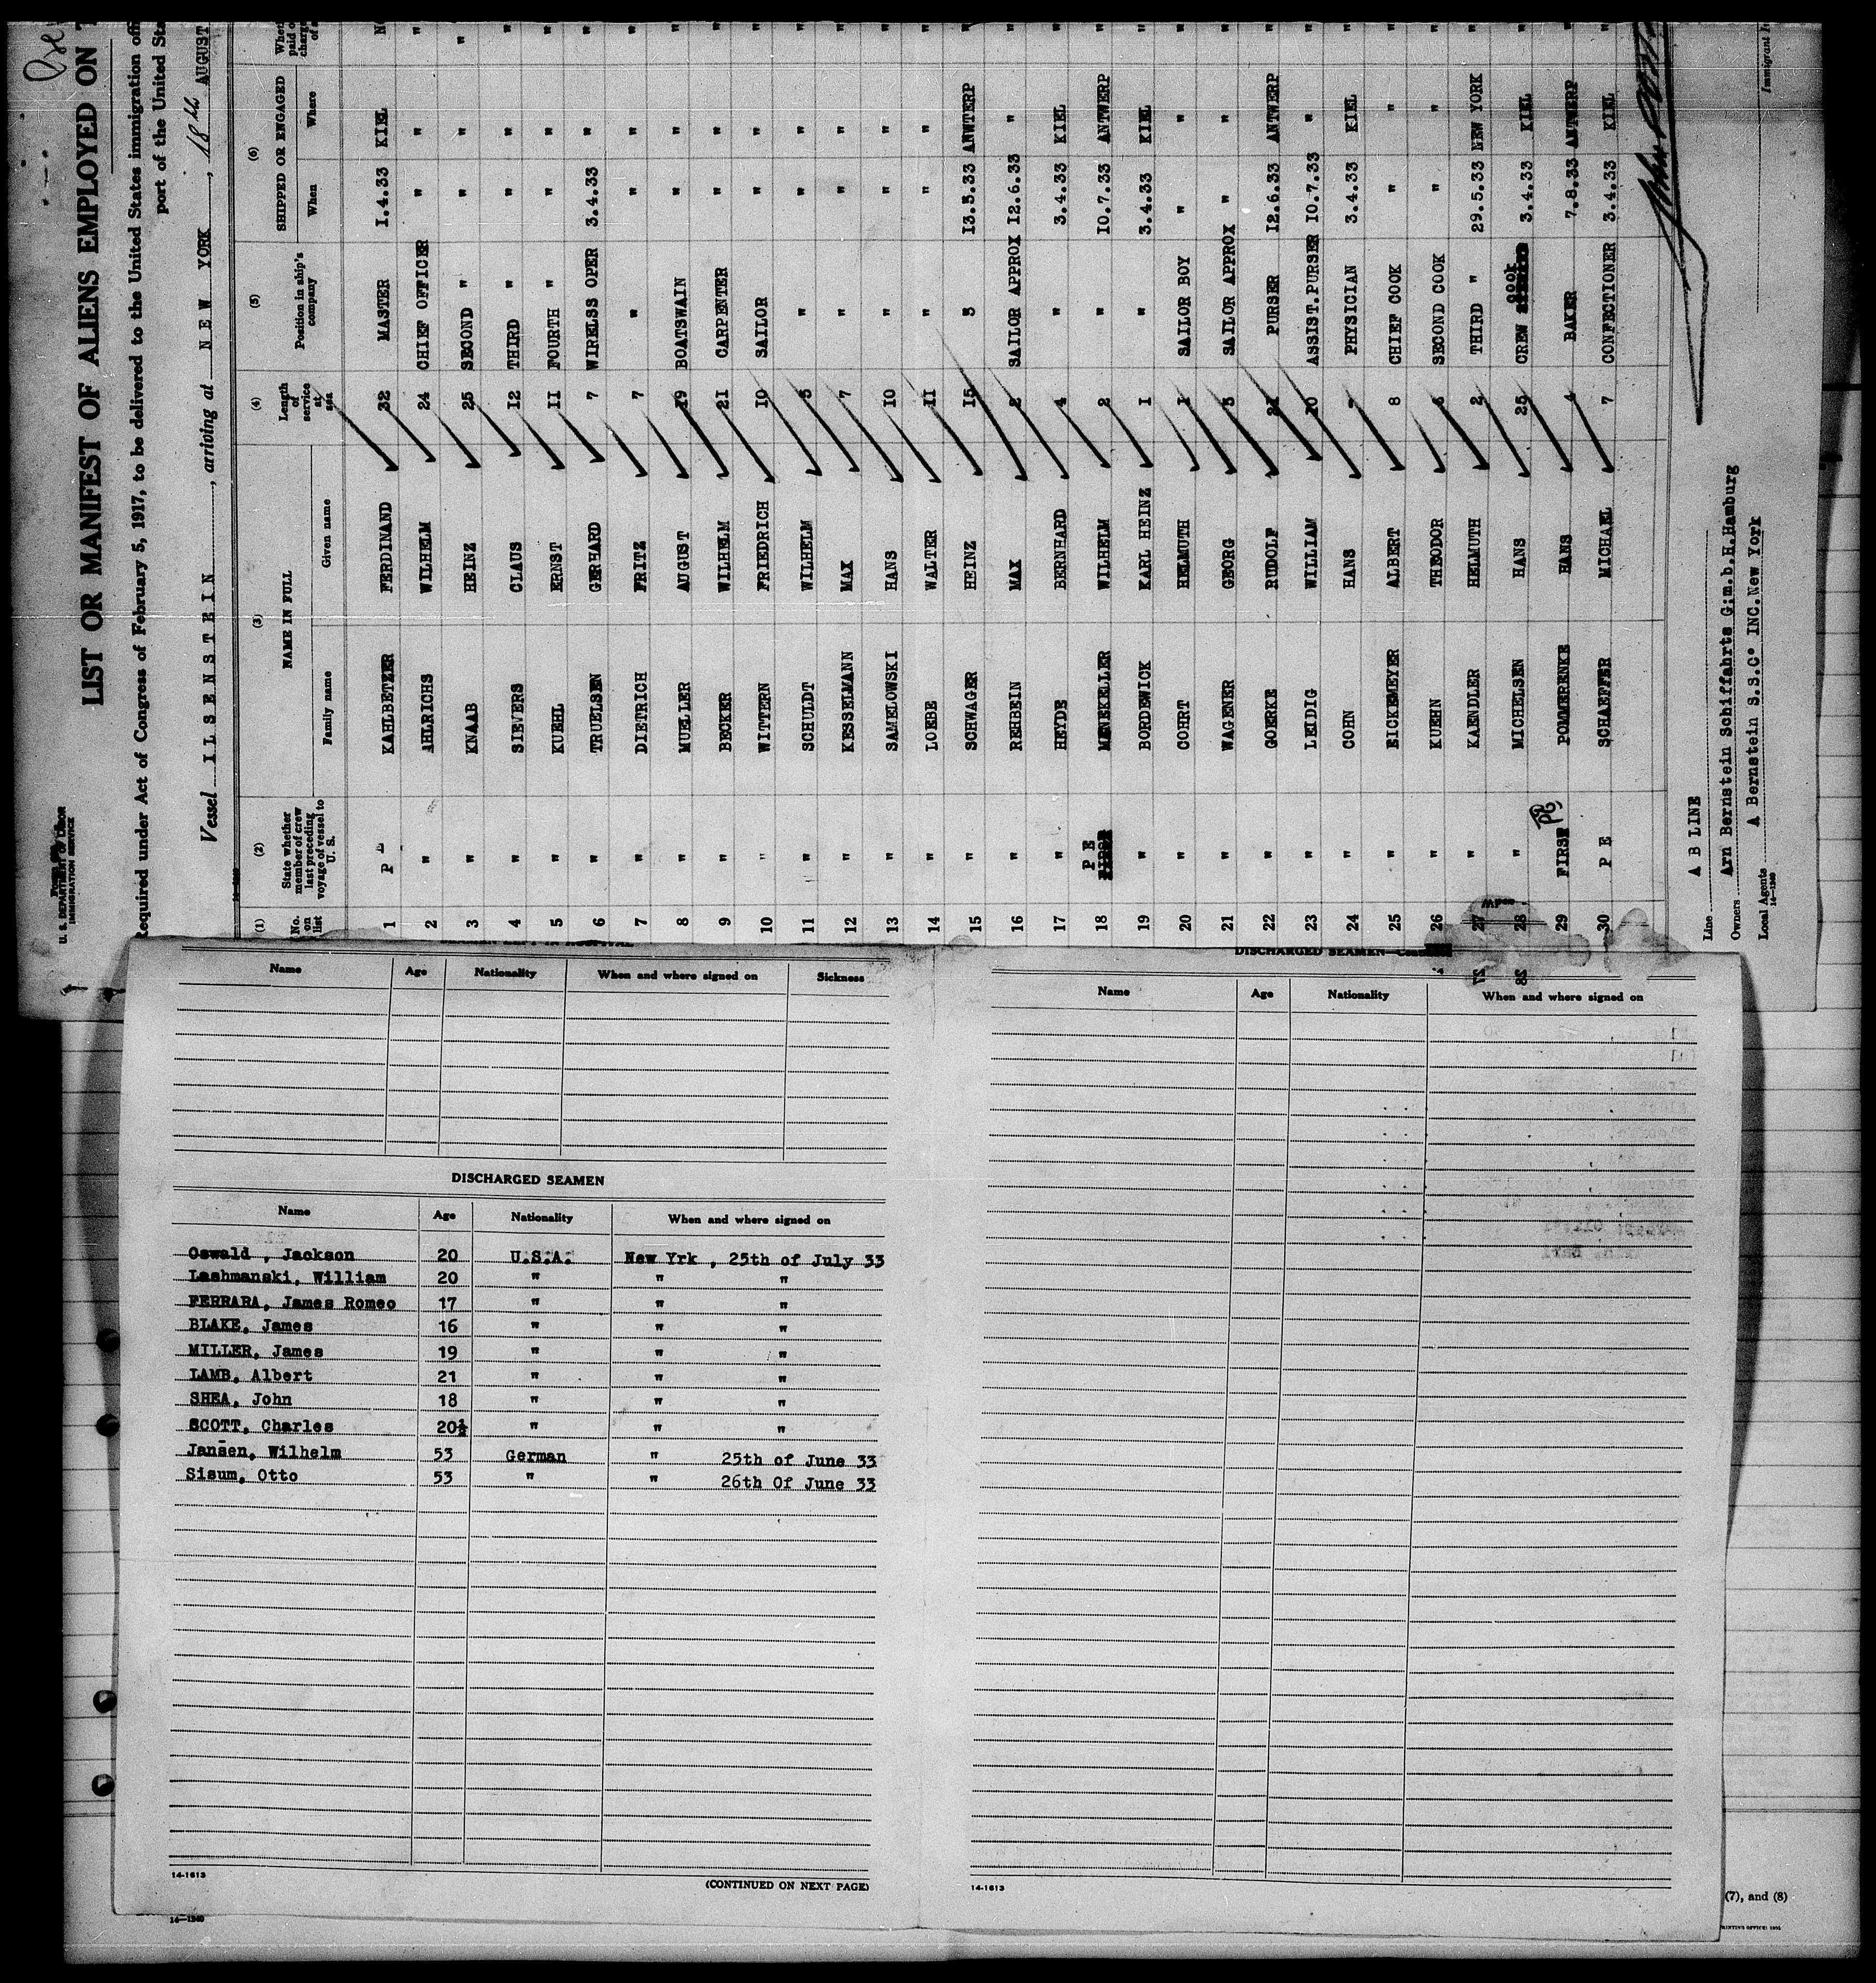 U. S. DEPARTMENT OF LABOR
IMMIGRATION SERVICE
LIST OR MANIFEST OF ALIENS EMPLOYED ON
Required under Act of Congress of February 5, 1917, to be delivered to the United States immigration
port of the United
Vessel ILSENSTEIN, arriving at NEW YORK, 18th AUGUST
(1) (2) (3) (4) (5) (6)
No. on list
State whether member of crew last preceding voyage of vessel to U. S.
NAME IN FULL
Family name Given name
Length of service at sea
Position in ship's company
SHIPPED OR ENGAGED
When Where
1 P KAHLBETZER FERDINAND 32 MASTER 1.4.33 KIEL
2 " AHLRICHS WILHELM 24 CHIEF OFFICER " " "
3 " KNAAB HEINZ 25 SECOND " " " "
4 " SIEVERS CLAUS 12 THIRD " " " "
5 " KUEHL ERNST 11 FOURTH " " " "
6 " TRUELSEN GERHARD 7 WIRELSS OPER 3.4.33 " "
7 " DIETRICH FRITZ 7 " " " "
8 " MUELLER AUGUST 19 BOATSWAIN " " "
9 " BECKER WILHELM 21 CARPENTER " " "
10 " WITTERN FRIEDRICH 10 SAILOR " " "
11 " SCHULDT WILHELM 5 " " " "
12 " KESSELMANN MAX 7 " " " "
13 " SAMELOWSKI HANS 10 " " " "
14 " LOEBE WALTER 11 " " " "
15 " SCHWAGER HEINZ 15 3 13.3.33 ANWTERP "
16 " REHBEIN MAX 2 SAILOR APPROX 12.6.33 " "
17 " HEYDE BERNHARD 4 " 3.4.33 KIEL "
18 P E MENEKELLER WILHELM 2 " 10.7.33 ANTWERP "
19 " BORDEWICK KARL HEINZ 1 " 3.4.33 KIEL "
20 " COHRT HELMUTH 1 SAILOR BOY " " "
21 " WAGENER GEORG 3 SAILOR APPROX " " "
22 " GOERKE RUDOLF PURSER 12.6.33 ANTWERP "
23 " LEIDIG WILLIAM 10 ASSIST.PURSER 10.7.33 " "
24 " COHN HANS PHYSICIAN 3.4.33 KIEL "
25 " EICKEMEYER ALBERT 8 CHIEF COOK " " "
26 " KUEHN THEODOR 6 SECOND COOK " " "
27 " KAENDLER HELMUTH 2 THIRD " 29.5.33 NEW YORK "
28 " MICHELSEN HANS 25 CREW cook 3.4.33 KIEL "
29 FIRST PE POMMERENKE HANS 4 BAKER 7.8.33 ANTWERP "
30 P E SCHAEFFER MICHAEL 7 CONFECTIONER 3.4.33 KIEL "
Line A B LINE
Owners Arn Bernstein Schiffahrts G;m.b.H.Hamburg
Local Agents A Bernstein S.S.Co INC.New York
14-1240
Name Age Nationality When and where signed on Sickness
DISCHARGED SEAMEN
Name Age Nationality When and where signed on
Oswald , Jackson 20 U.S.A. New Yrk , 25th of July 33
Lashmanski, William 20 " " "
FERRARA, James Romeo 17 " " "
BLAKE, James 16 " " "
MILLER, James 19 " " "
LAMB, Albert 21 " " "
SHEA, John 18 " " "
SCOTT, Charles 20½ " " "
Jansen, Wilhelm 53 German " 25th of June 33
Sisum, Otto 53 " " 26th Of June 33
14-1613
(CONTINUED ON NEXT PAGE)
14-1240
DISCHARGED SEAMEN
Name Age Nationality When and where signed on
14-1613
(7), and (8)